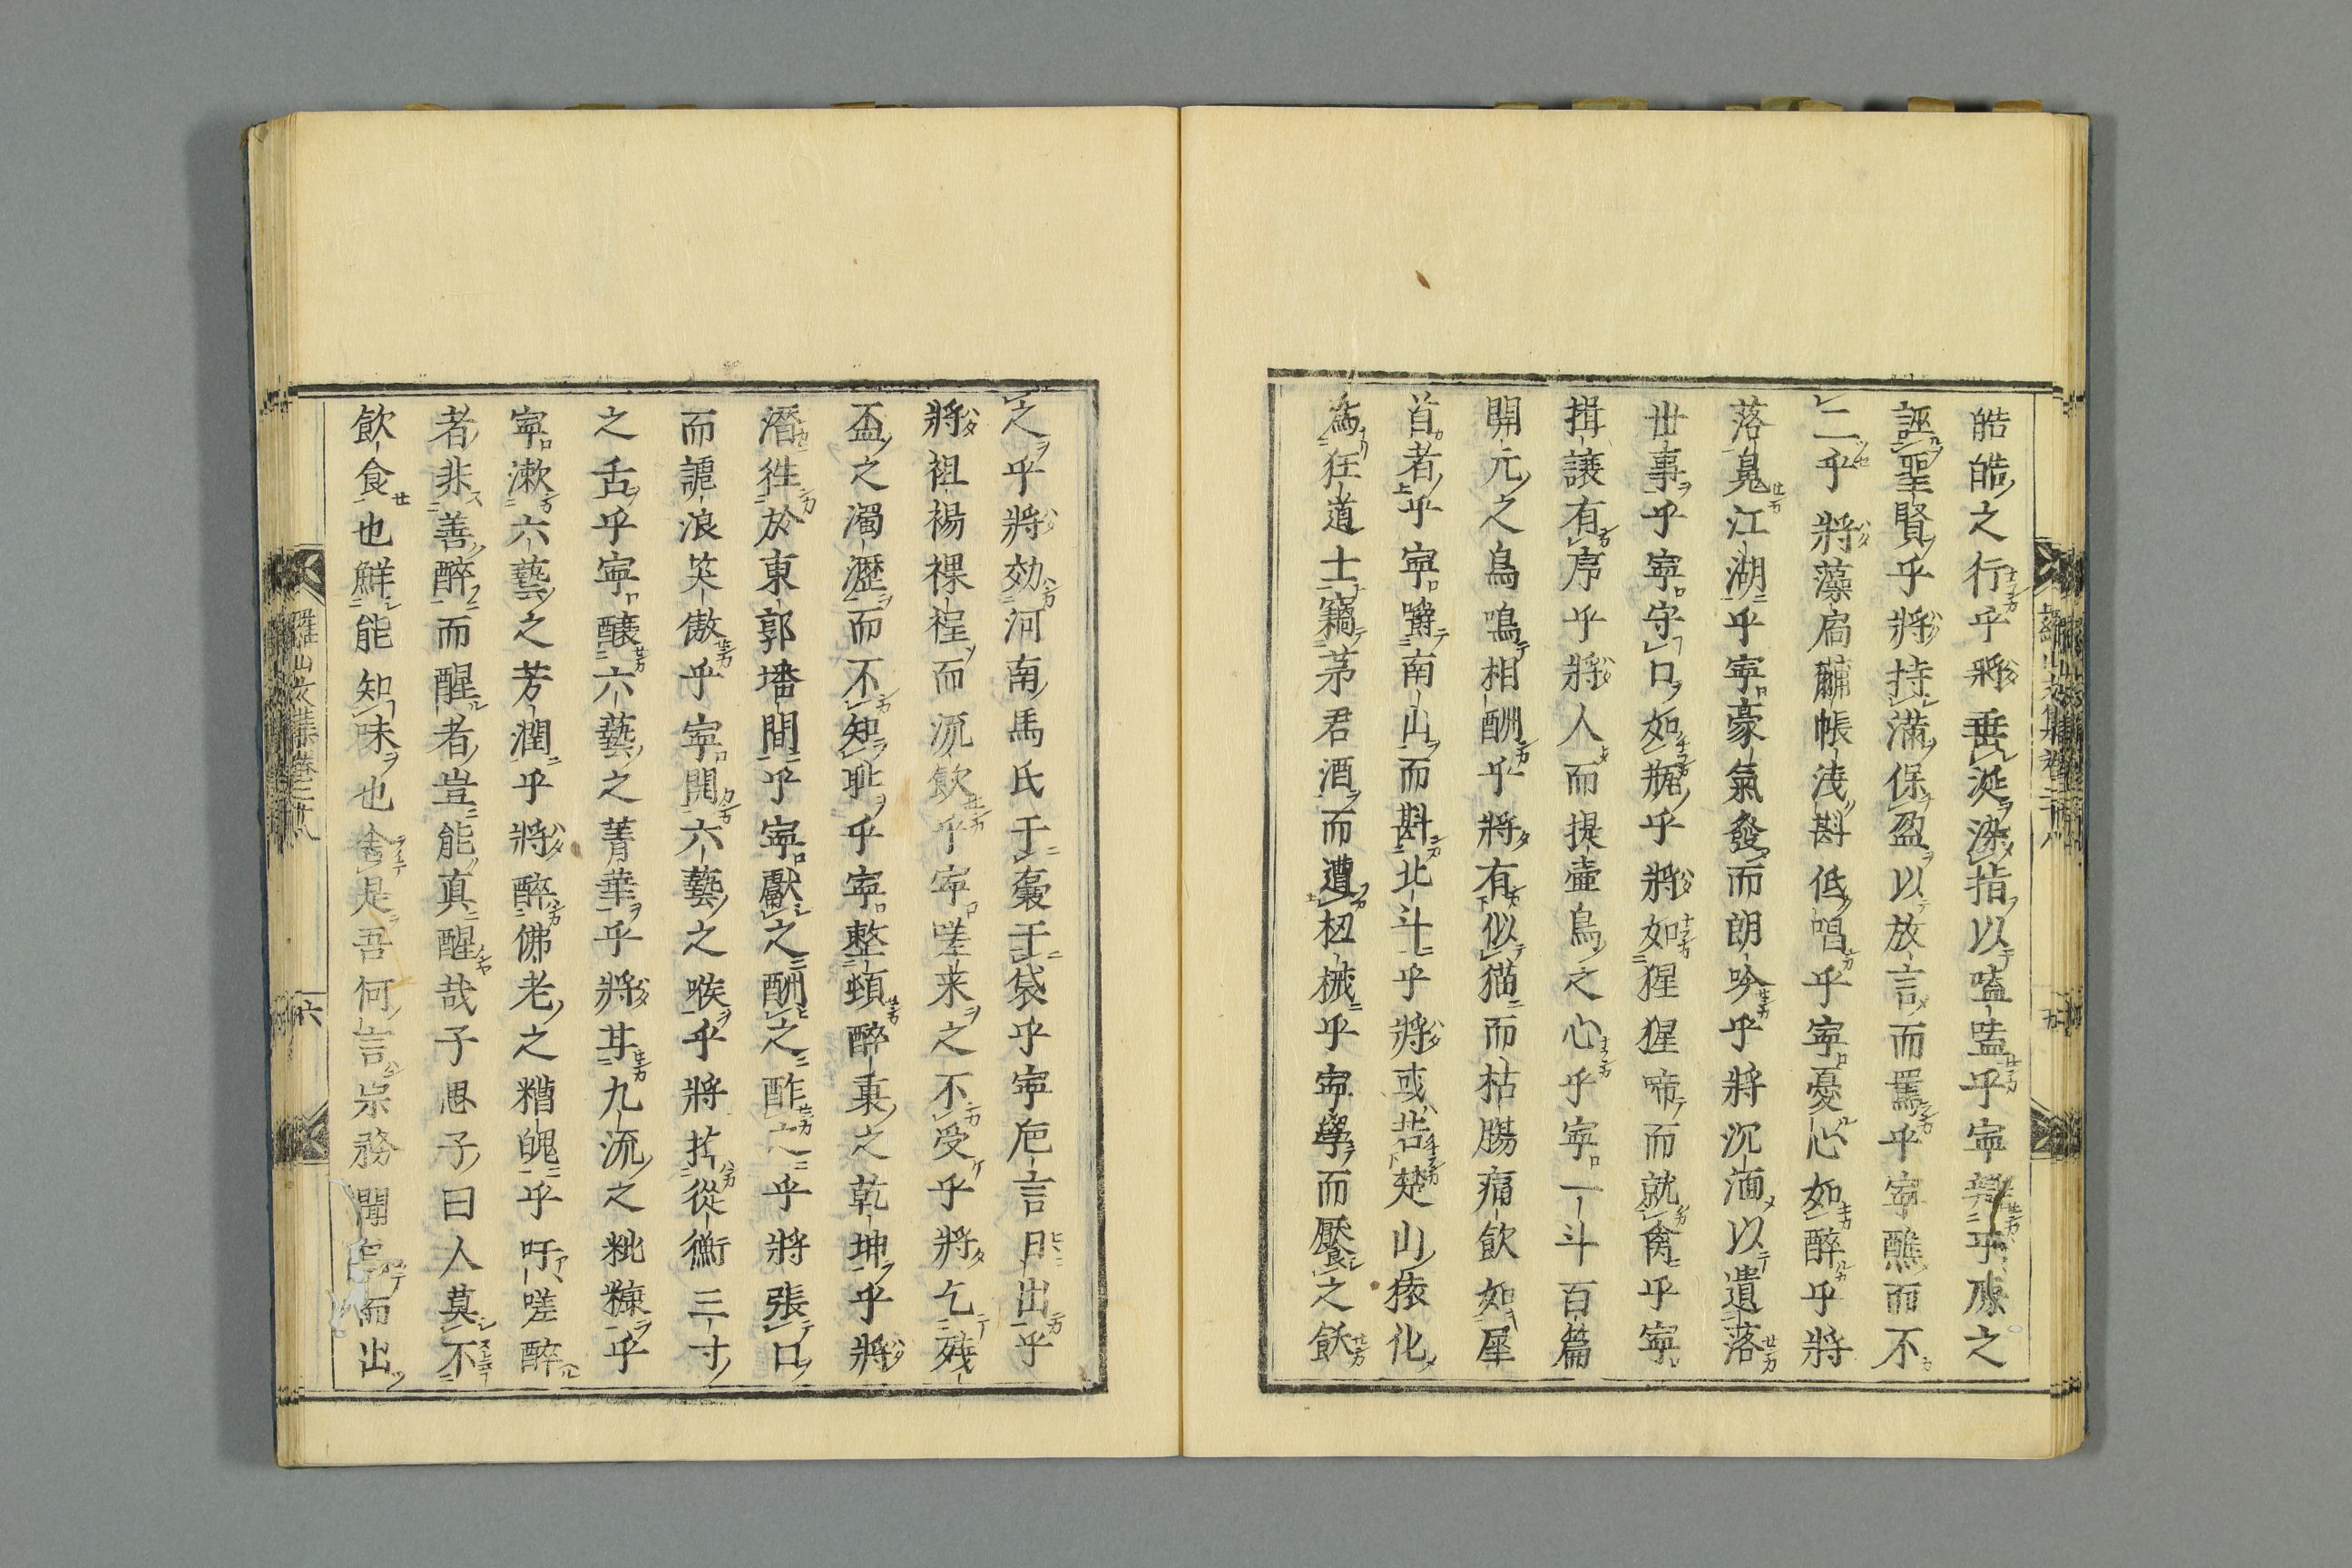 皓皓之行乎將垂涎染指以嗑嗑乎寧辭乎康之
誣聖賢乎將持滿保盈以放言而罵乎寧醮而不
二乎將藻扃黼帳淺斟低唱乎寧憂心如醉乎將
落魄江湖乎寧豪氣發而朗吟乎將沉湎以遺落
世事乎寧守口如瓶乎將如猩猩啼而就禽乎寧
揖讓有序乎將人而提壷鳥之心乎寧一斗百篇
開元之鳥鳴相酬乎將有似猫而枯腸痛飲如犀
首者乎寧嚼南山而斟北斗乎將或苦楚山猿化
為狂道士竊茅君酒而遭杻械乎寧學而厭食之飫
之乎將効河南馬氏于囊于袋乎寧巵言日出乎
將袒裼裸裎而流飲乎寧嗟来之不受乎將乞殘
盃之濁瀝而不知耻乎寧整頓醉棄之乾坤乎將
潛徃於東郭墦間乎寧獻之酬之酢之乎將張口
而謔浪笑傲乎寧開六藝之喉乎將苦從衡三寸
之舌乎寧釀六藝之菁華乎將甘九流之粃糠乎
寧漱六藝之芳潤乎將醉佛老之糟醜乎吁嗟醉
者非善醉而醒者豈能真醒哉子思子曰人莫不
飲食也鮮能知味也舎是吾何言宗務聞而出
羅山文集卷二十八
六